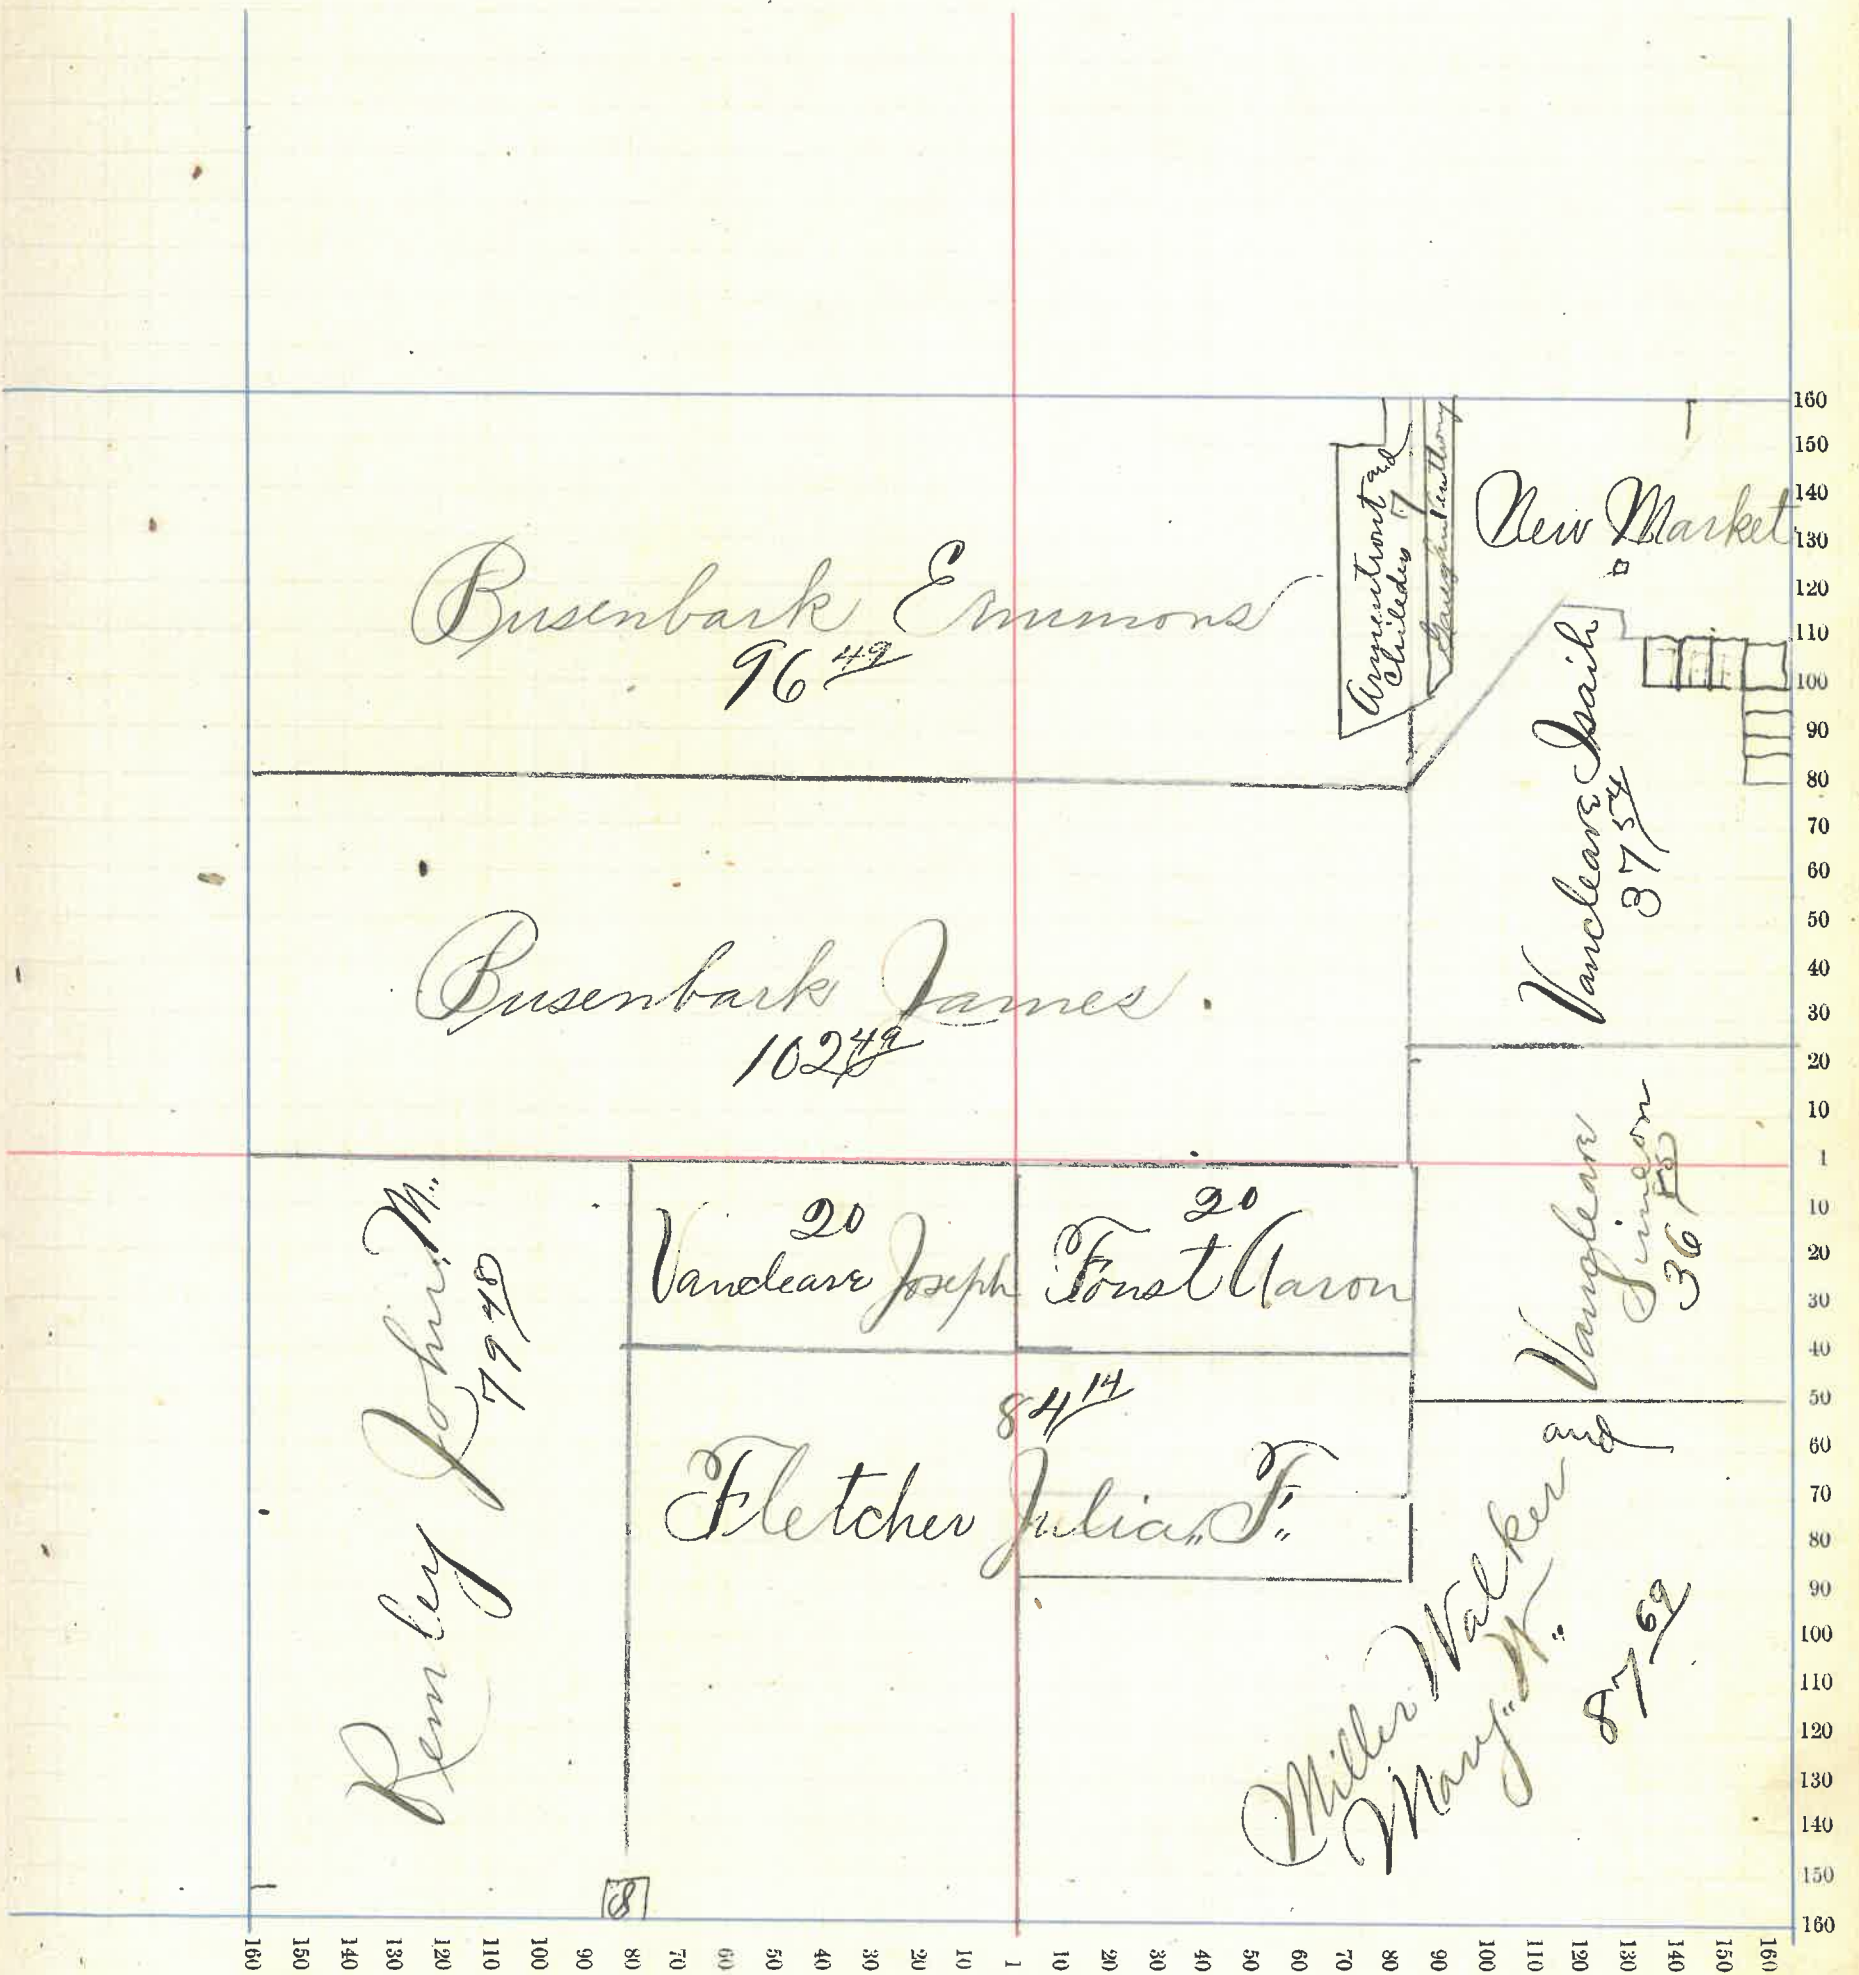 New Market
Armentrout and
Childers 7
Busenbark Emmons
96 49
Vancleave Isaih
37 54
Busenbark James
102 49
Vancleave
Simeon
36
Remley John "M"
79 48
20
Vancleave Joseph
20
Foust Aaron
84 14
Fletcher Julia "F"
Miller Walker and
Mary "W"
87 69
8
160
150
140
130
120
110
100
90
80
70
60
50
40
30
20
10
1
10
20
30
40
50
60
70
80
90
100
110
120
130
140
150
160
160 150 140 130 120 110 100 90 80 70 60 50 40 30 20 10 1 10 20 30 40 50 60 70 80 90 100 110 120 130 140 150 160